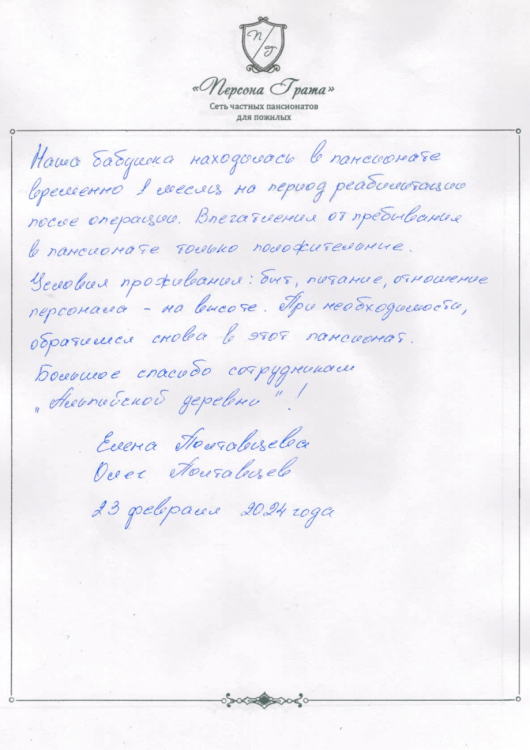 П/Г
«Персона Грата»
Сеть частных пансионатов
для пожилых
Наша бабушка находилась в пансионате
временно 1 месяц на период реабилитации
после операции. Впечатления от пребывания
в пансионате только положительные.
Условия проживания: быт, питание, отношение
персонала - на высоте. При необходимости,
обратимся снова в этот пансионат.
Большое спасибо сотрудникам
"Альпийской деревни"!
Елена Полтавцева
Олег Полтавцев
23 февраля 2024 года